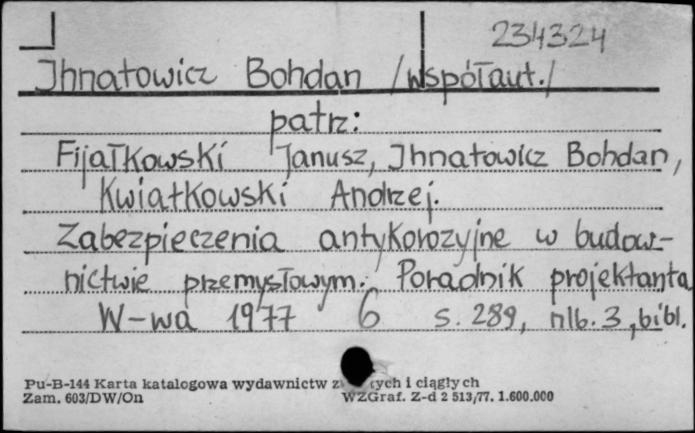 234324
Ihnatowicz Bohdan /współaut./
patrz:
Fijałkowski Janusz, Ihnatowicz Bohdan,
Kwiatkowski Andrzej.
Zabezpieczenia antykorozyjne w budow-
nictwie przemysłowym. Poradnik projektanta
W-wa 1977 6 s. 289, nlb. 3, bibl.
Pu-B-144 Karta katalogowa wydawnictw i ciągłych
Zam. 603/DW/On WZGraf. Z-d 2 513/77. 1.600.000